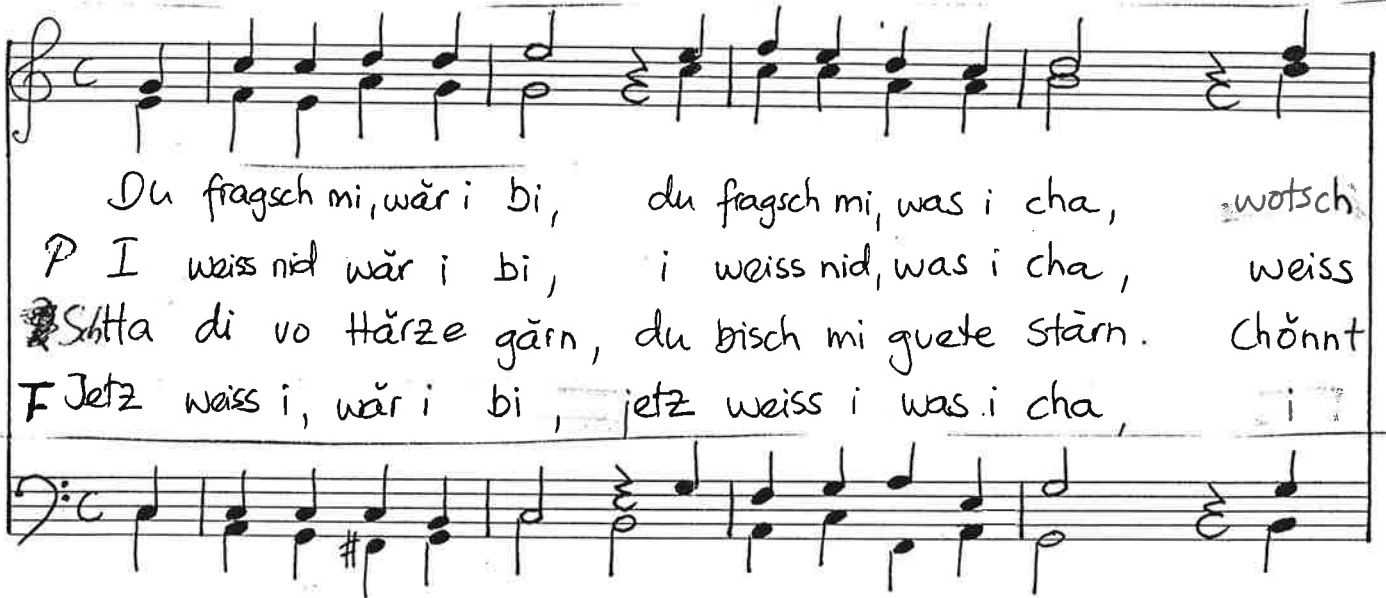 Du fragsch mi, wär i bi, du fragsch mi, was i cha, wotsch
P I weiss nid wär i bi, i weiss nid, was i cha, weiss
Ha di vo Härze gärn, du bisch mi guete Stärn. Chönnt
F Jetz weiss i, wär i bi, jetz weiss i was i cha, i